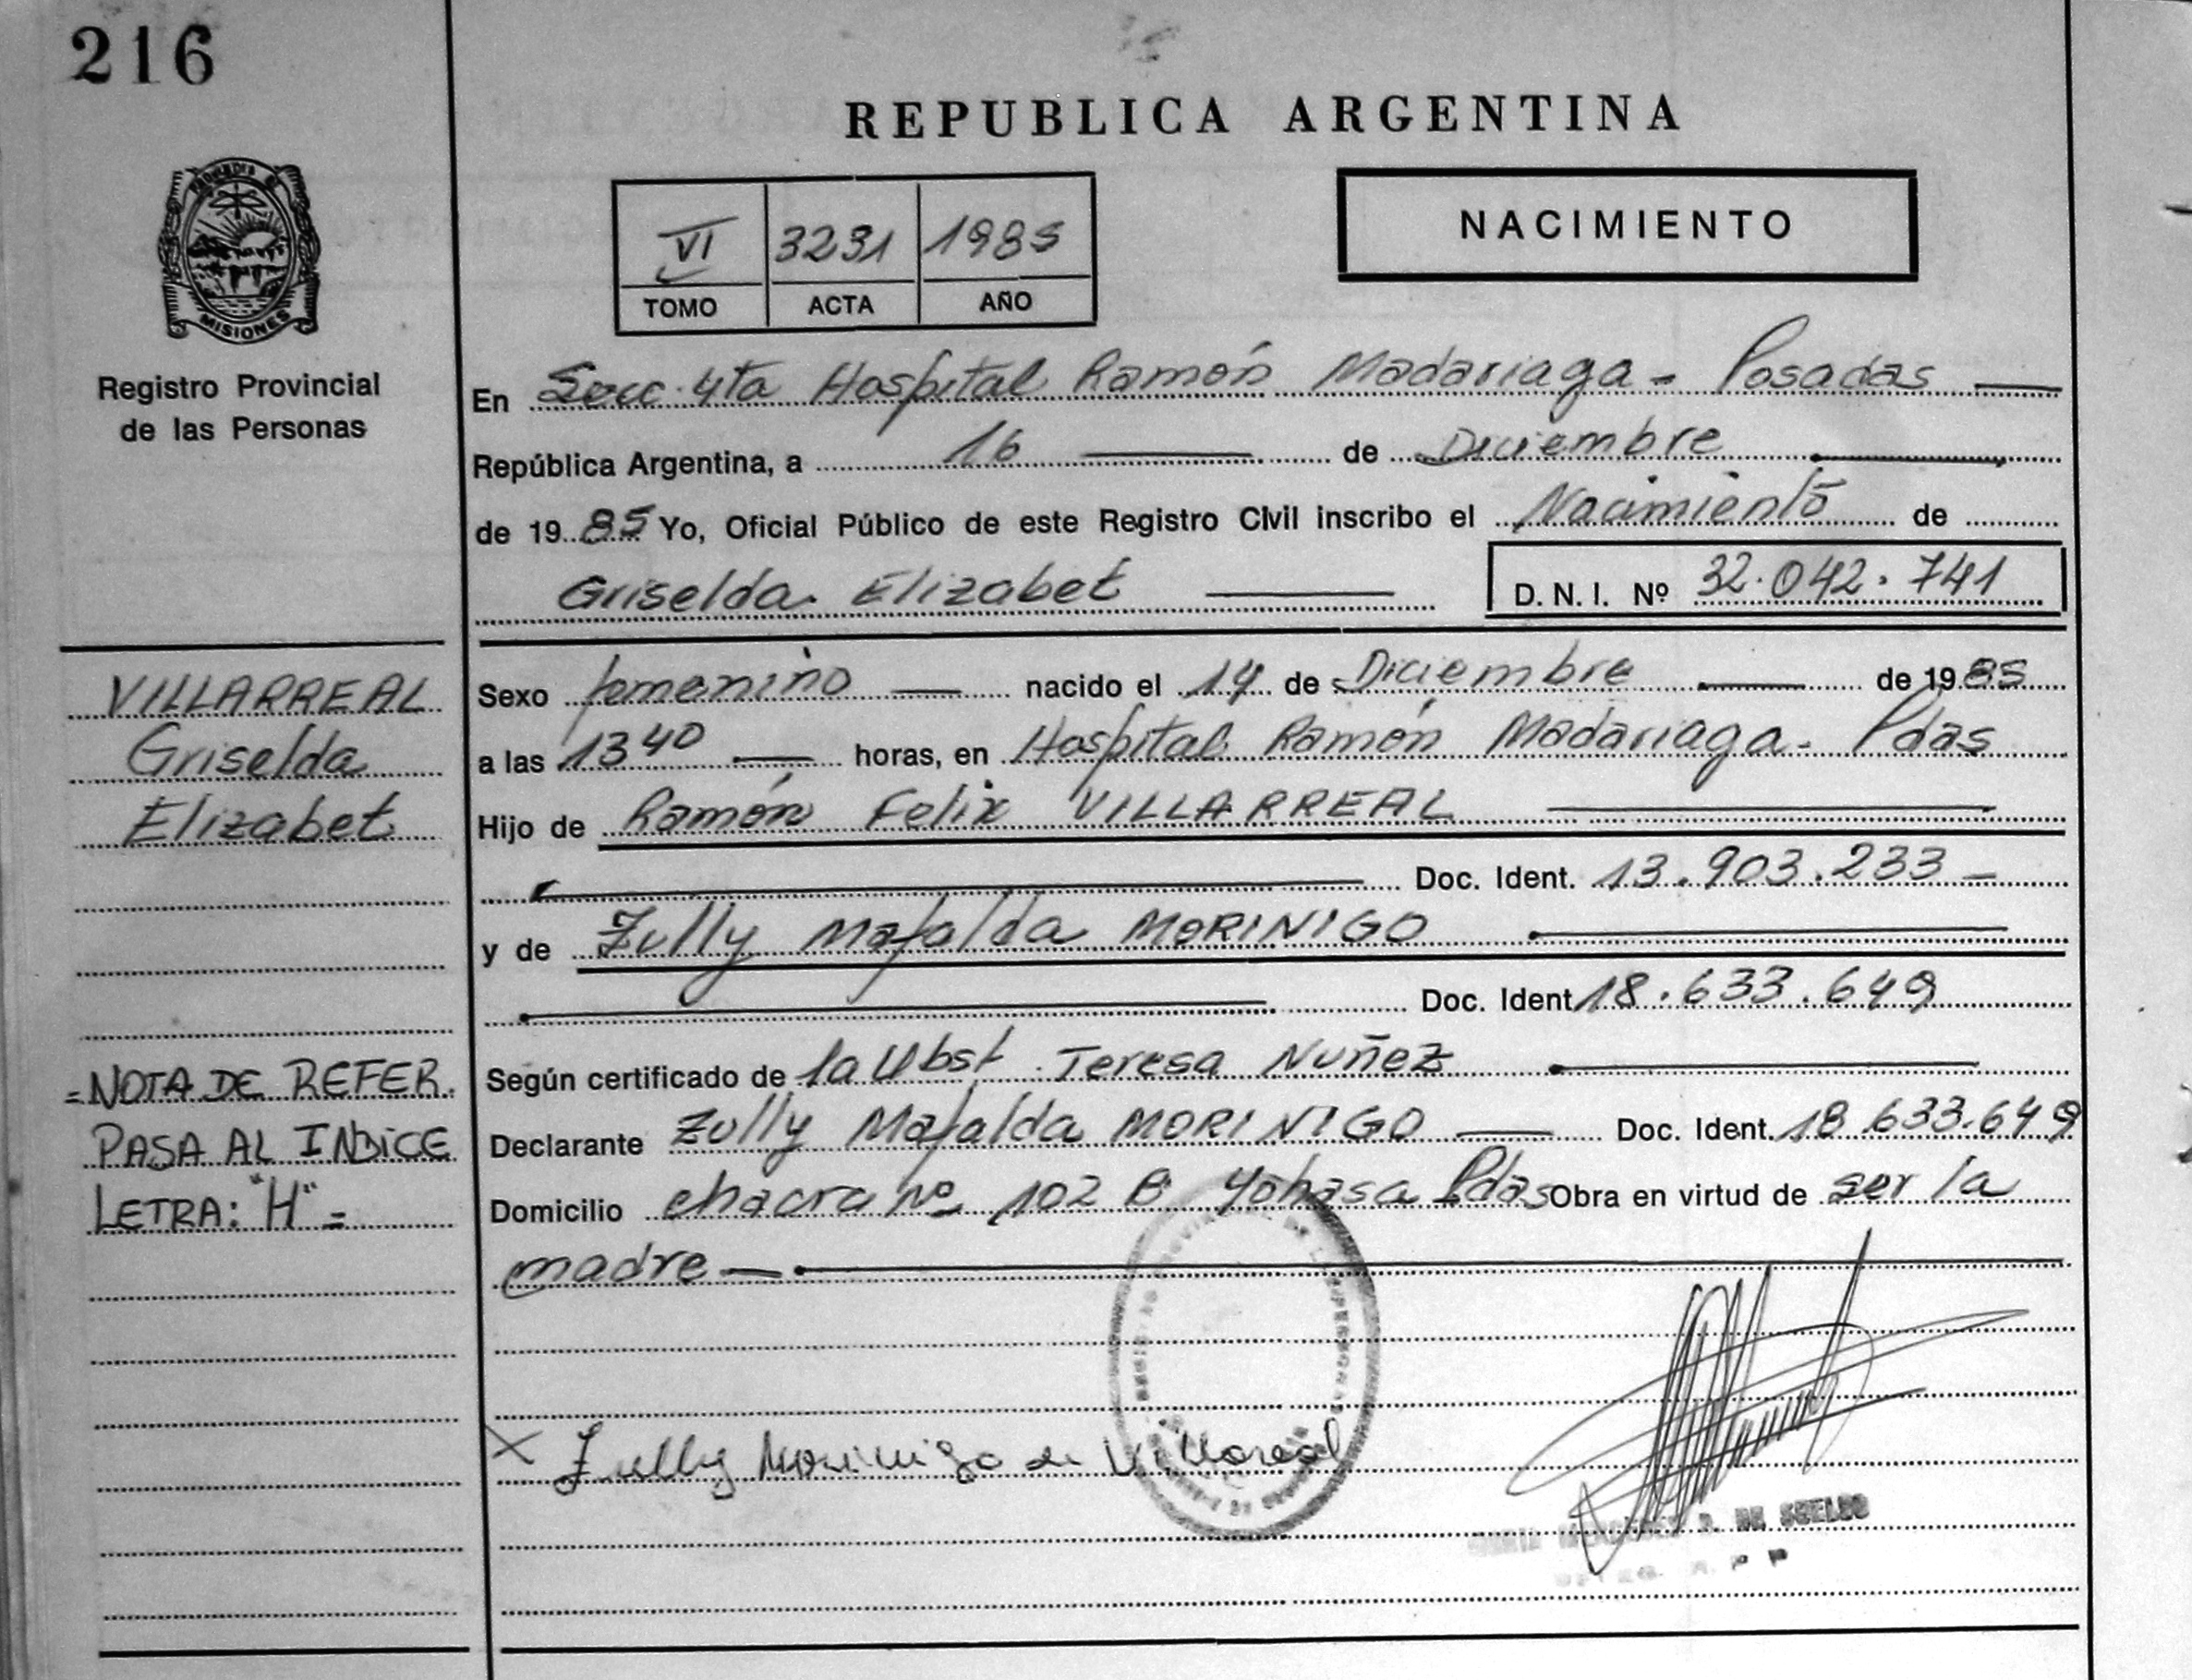 216
REPUBLICA ARGENTINA
NACIMIENTO
VI 3231 1985
TOMO ACTA AÑO
MISIONES
Registro Provincial
de las Personas
En Secc. 4ta Hospital Ramón Madariaga - Posadas
República Argentina, a 16 de Diciembre
de 19 85 Yo, Oficial Público de este Registro Civil inscribo el Nacimiento de
Griselda Elizabet D. N. I. Nº 32.042.741
VILLARREAL
Griselda
Elizabet
Sexo femenino nacido el 14 de Diciembre de 19 85
a las 13 40 horas, en Hospital Ramón Madariaga - Pdas
Hijo de Ramón Felix VILLARREAL
Doc. Ident. 13.903.233
y de Zully Mafalda MORINIGO
Doc. Ident 18.633.649
= NOTA DE REFER.
PASA AL INDICE
LETRA: "H" =
Según certificado de la Obst. Teresa Nuñez
Declarante Zully Mafalda MORINIGO Doc. Ident. 18.633.649
Domicilio chacra nº 102 B Pdas Obra en virtud de ser la
madre
X Zully Morinigo de Villareal
DE SUELDO